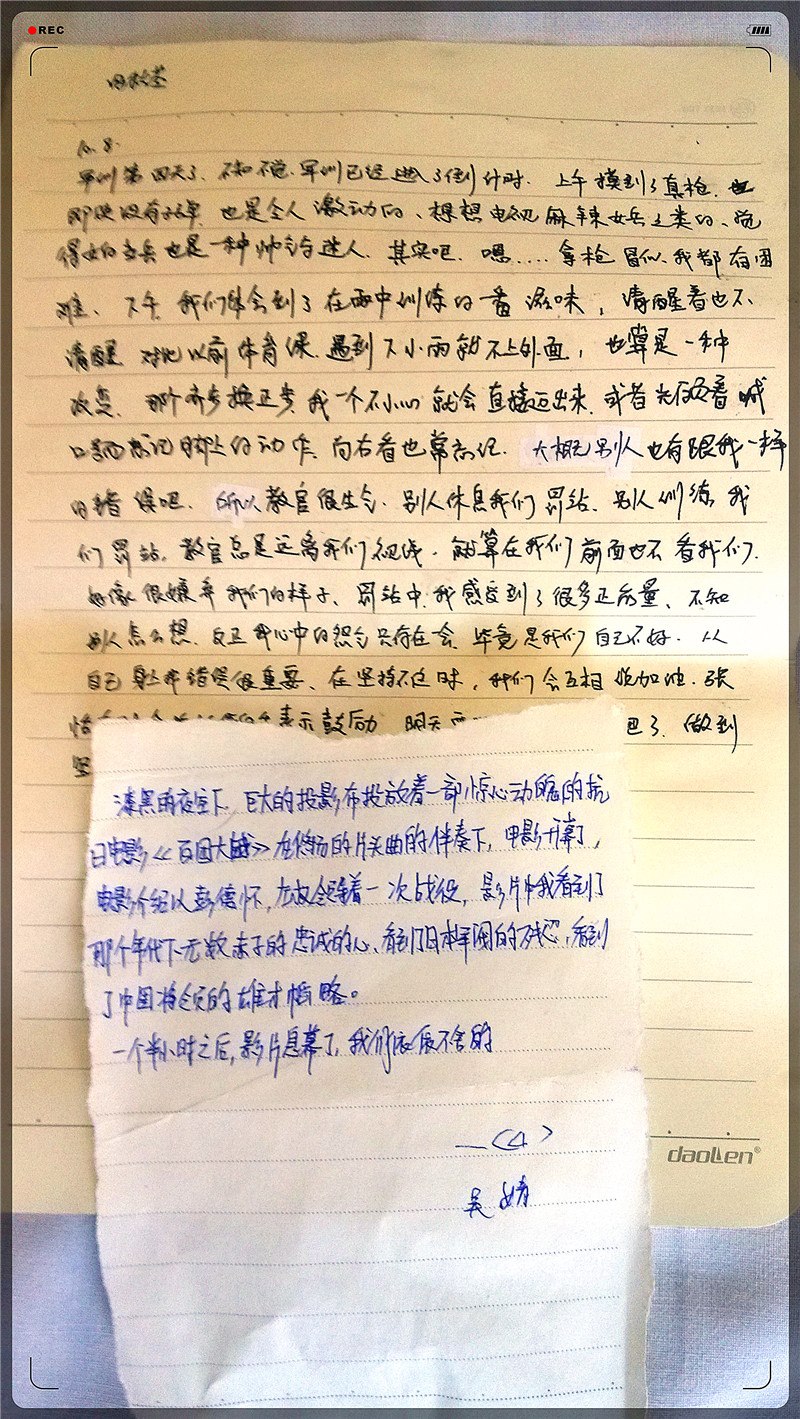 REC
10.8.
军训第四天了、不知不觉.军训已经进入了倒计时. 上午摸到了真枪.
即使没有子弹.也是令人激动的、想想电视麻辣女兵之类的、觉
得女的当兵也是一种帅气与迷人.其实吧.嗯.....拿枪冒似我都有困
难、下午.我们体会到了在雨中训练的一番滋味，清醒着也不
清醒 对比以前体育课.遇到下小雨就不上外面，也算是一种
改变. 那个齐步换正步.我一个不小心就会直接迈出来.或者光顾着喊
口号而忘记脚上的动作.向右看也常忘记. 大概别人也有跟我一样
的错误吧. 所以教官很生气.别人休息我们罚站.别人训练,我
们罚站.教官总是远离我们视线.就算在我们前面也不看我们.
好像很嫌弃我们的样子、罚站中.我感受到了很多正能量、不知
别人怎么想.反正我心中的怨气只存在一会.毕竟是我们自己不好.从
自己身上找错误很重要、在坚持不住时，我们会互相说加油.张
表示鼓励 明天 吧了.做到
坚
漆黑的夜空下，巨大的投影布投放着一部惊心动魄的抗
日电影《百团大战》在悠扬的片头曲的伴奏下，电影开幕了，
电影介绍以彭德怀，左权领导着一次战役，影片中我看到了
那个年代下无数赤子的忠诚的心、看到了日本军阀的残忍，看到
了中国将领的雄才韬略。
一个半小时之后，影片息幕了，我们依依不舍的
—(4)
吴婧
daolen®